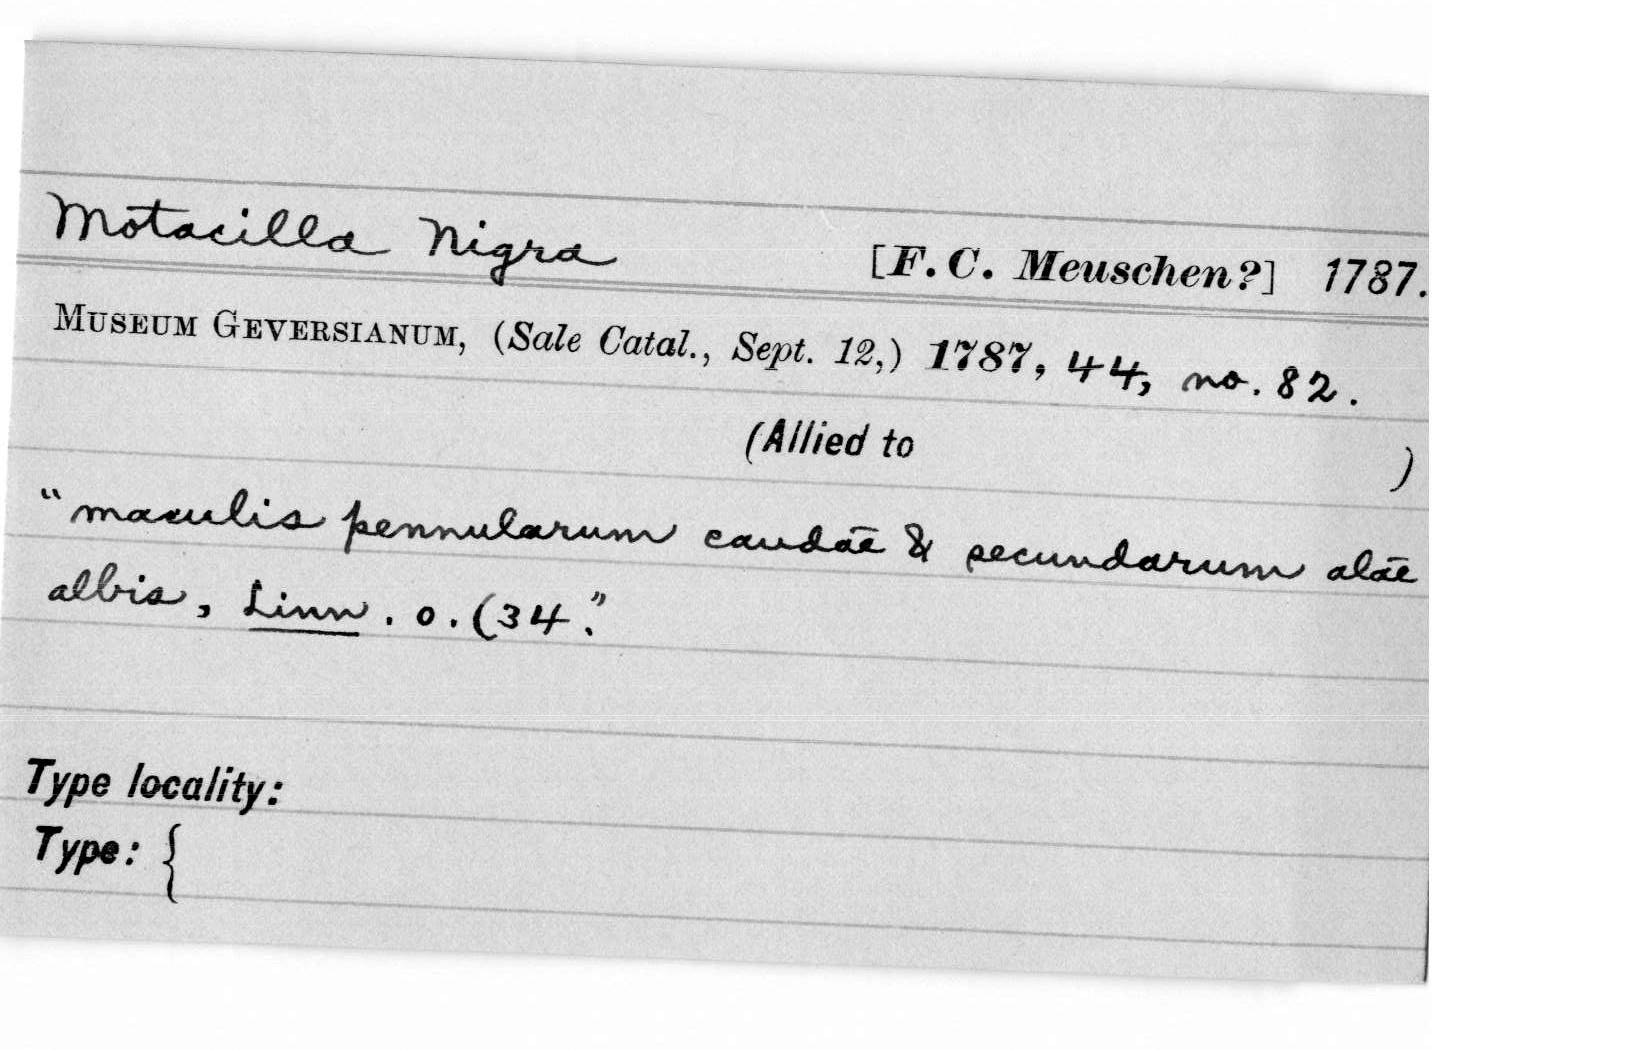 Motacilla Nigra [F. C. Meuschen?] 1787.
Museum Geversianum, (Sale Catal., Sept. 12,) 1787, 44, no. 82.
(Allied to )
"maculis pennularum caudāe & secundarum alāe
albis, Linn. o. (34."
Type locality:
Type: {